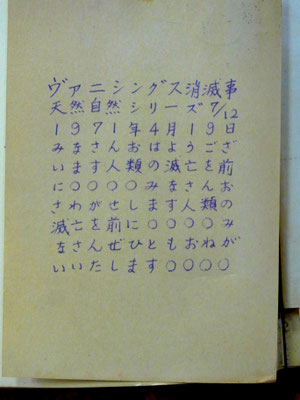 ヴァニシングス消滅事
天然自然シリーズ7/12
1971年4月19日
みなさんおはようござ
います人類の滅亡を前
に○○○○みなさんお
さわがせします人類の
滅亡を前に○○○○み
なさんぜひともおねが
いいたします○○○○